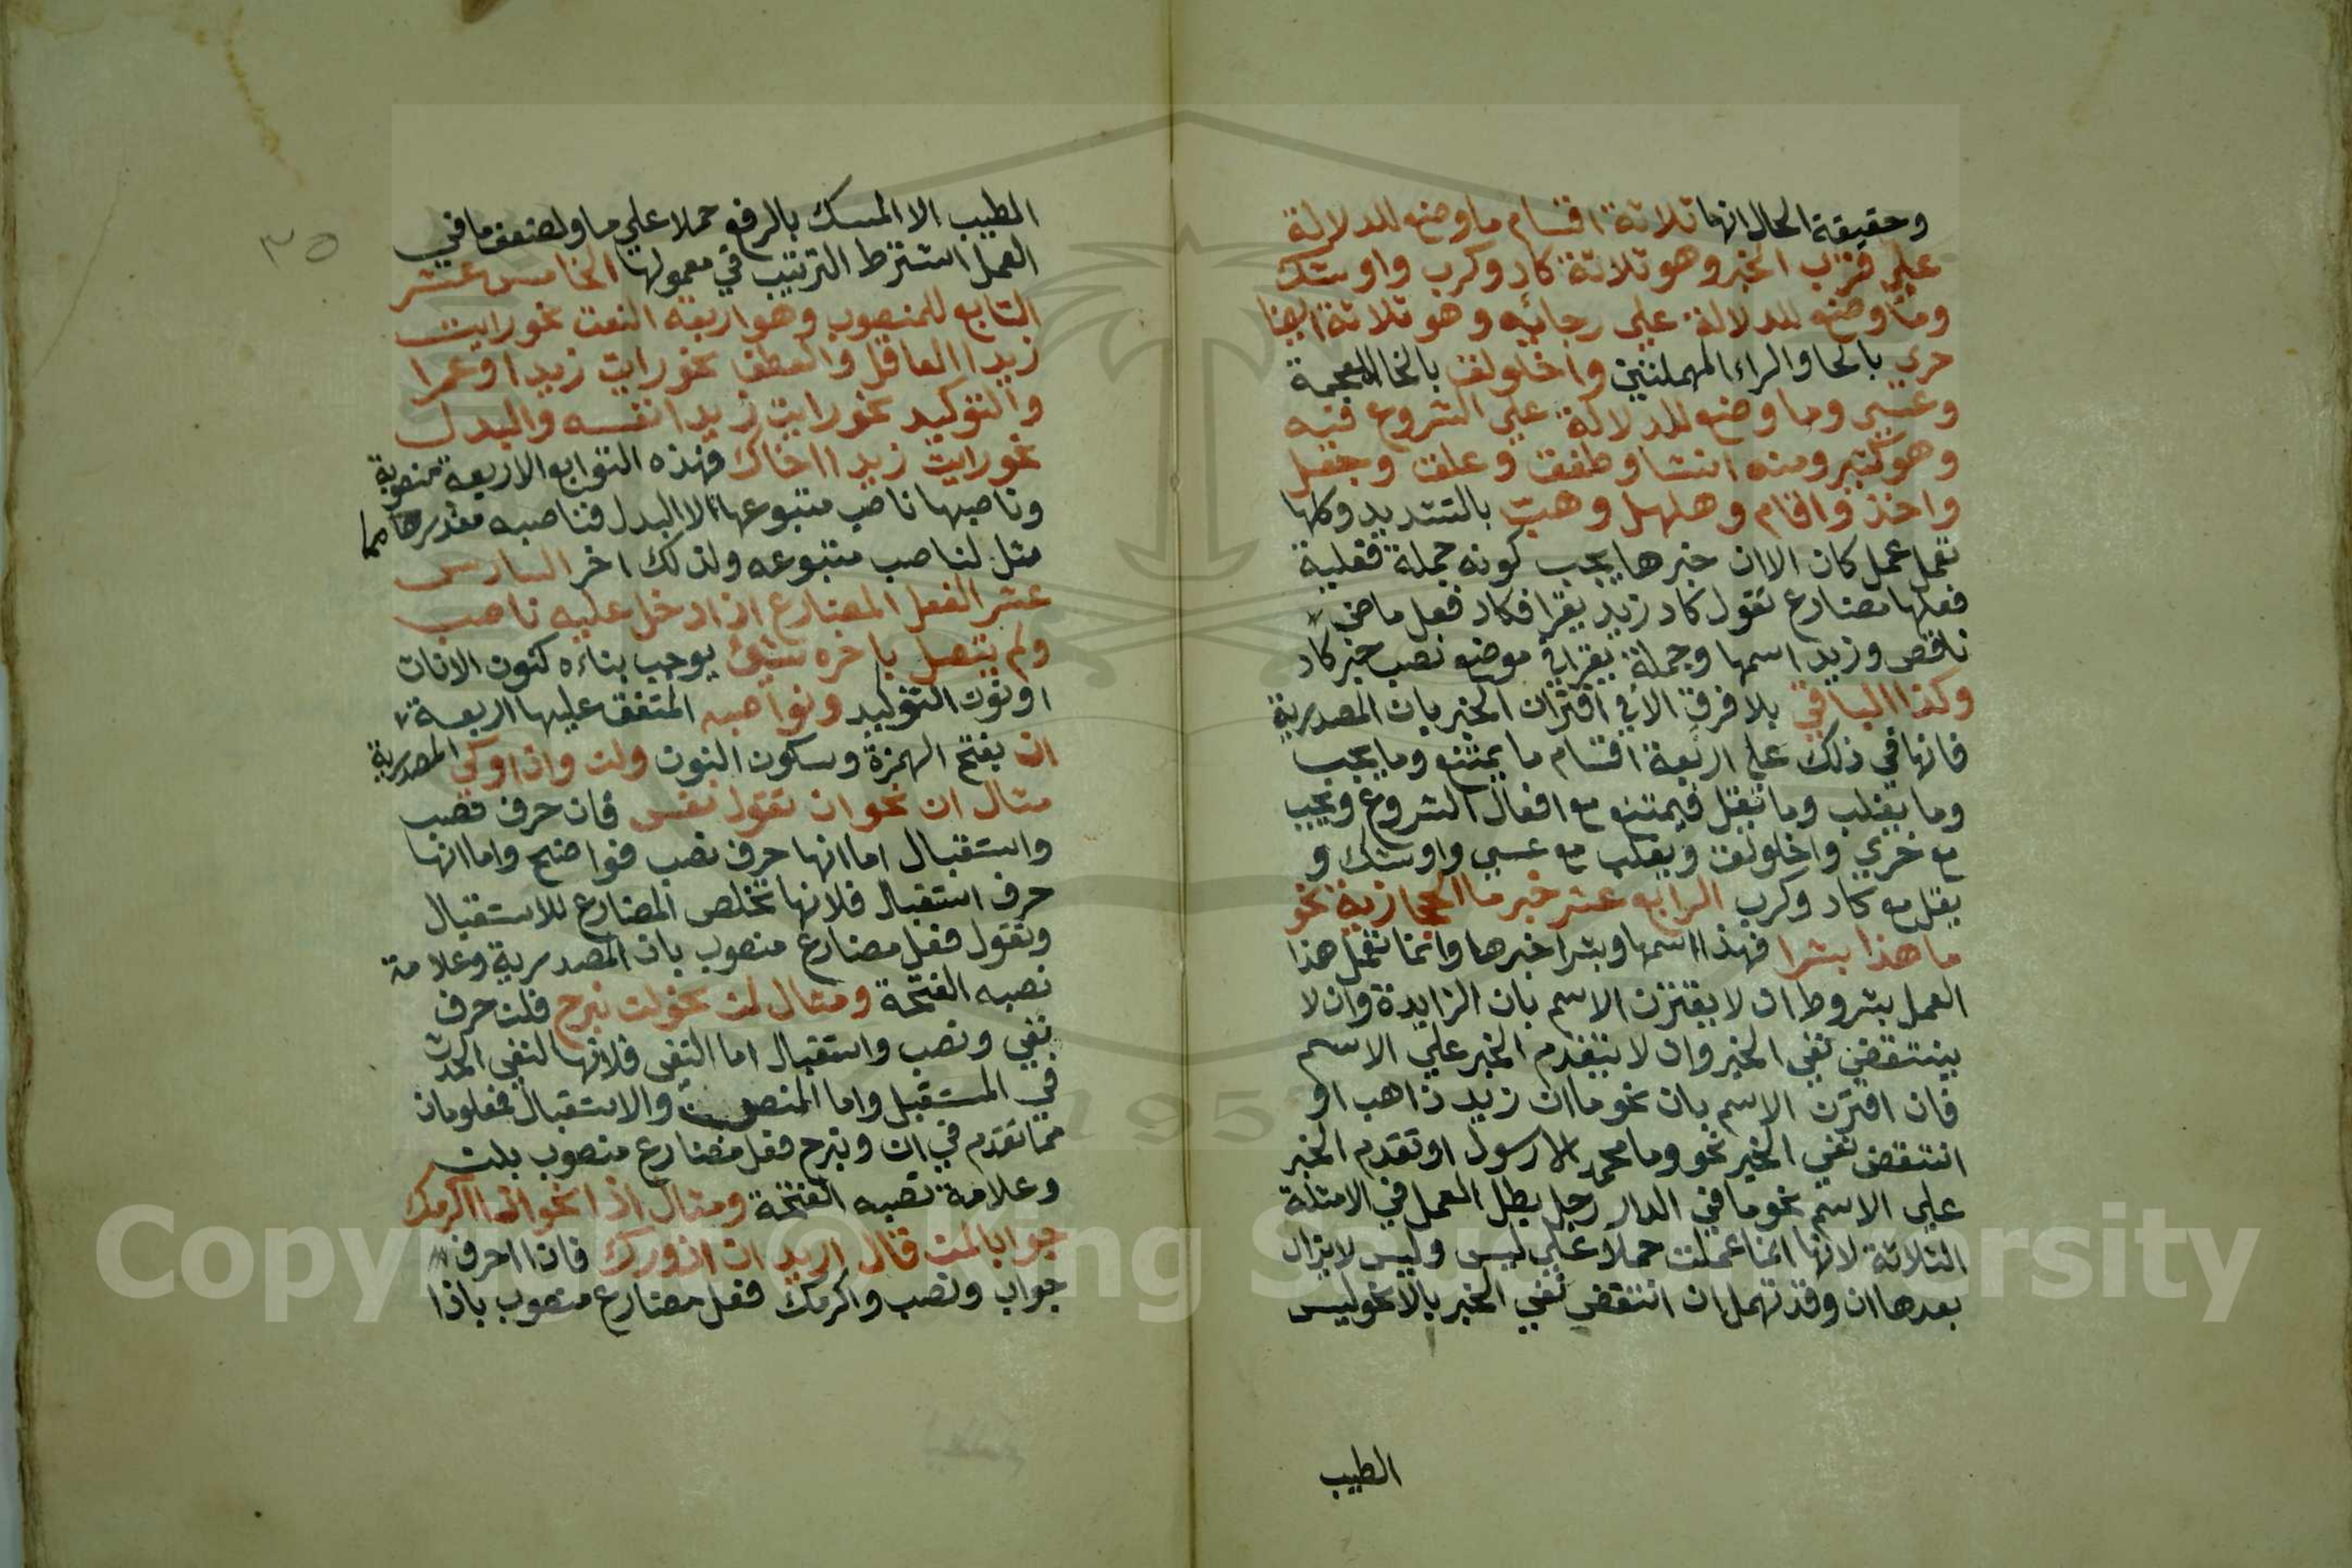 وحقيقة الحال انها ثلاثة اقسام ما وضع للدلالة
علي قرب الخبر وهو ثلاثة كاد وكرب واوشك
وما وضع للدلالة علي رجائه وهو ثلاثة ايضا
حري بالحا والراء المهملتين واخلولق بالخا المعجمة
وعسي وما وضع للدلالة علي الشروع فيه
وهو كثير ومنه انشا وطفق وعلق وجعل
واخذ واقام وهلهل وهب بالتشديد وكلها
تعمل عمل كان الا ان خبرها يجب كونه جملة فعلية
فعلها مضارع تقول كاد زيد يقرا فكاد فعل ماض
ناقص وزيد اسمها وجملة يقرا في موضع نصب خبر كاد
وكذا الباقي بلا فرق الا في اقتران الخبر بان المصدرية
فانها في ذلك علي اربعة اقسام ما يمتنع وما يجب
وما يغلب وما يقل فيمتنع مع افعال الشروع ويجب
مع حري واخلولق ويغلب مع عسي واوشك و
يقل مع كاد وكرب الرابع عشر خبر ما الحجازية نحو
ما هذا بشرا فهذا اسمها وبشرا خبرها وانما تعمل هذا
العمل بشروط ان لا يقترن الاسم بان الزايدة وان لا
ينتقض نفي الخبر وان لا يتقدم الخبر علي الاسم
فان اقترن الاسم بان نحو ما ان زيد ذاهب او
انتقض نفي الخبر نحو وما محمد الا رسول او تقدم الخبر
علي الاسم نحو ما في الدار رجل بطل العمل في الامثلة
الثلاثة لانها انما عملت حملا علي ليس وليس لا يزال
بعدها ان وقد تهمل ان انتقض نفي الخبر بالا نحو ليس
الطيب
٣٥
الطيب الا المسك بالرفع حملا علي ما ولضعف ما في
العمل اشترط الترتيب في معمولها الخامس عشر
التابع للمنصوب وهو اربعة النعت نحو رايت
زيدا العاقل والعطف نحو رايت زيدا وعمرا
والتوكيد نحو رايت زيدا نفسه والبدل
نحو رايت زيدا اخاك فهذه التوابع الاربعة منصوبة
وناصبها ناصب متبوعها الا البدل فناصبه مقدر
مثل لناصب متبوعه ولذلك اخر السادس
عشر الفعل المضارع اذا دخل عليه ناصب
ولم يتصل باخره شيئ يوجب بناءه كنون الاناث
او نون التوكيد ونواصبه المتفق عليها اربعة
ان بفتح الهمزة وسكون النون ولن واذا وكي المصدرية
مثال ان نحو ان تقول نفس فان حرف نصب
واستقبال اما انها حرف نصب فواضح واما انها
حرف استقبال فلانها تخلص المضارع للاستقبال
وتقول فعل مضارع منصوب بان المصدرية وعلامة
نصبه الفتحة ومثال لن نحو لن نبرح فلن حرف
نفي ونصب واستقبال اما النفي فلانها لنفي الحدث
في المستقبل واما النصب والاستقبال فمعلومان
مما تقدم في ان ونبرح فعل مضارع منصوب بلن
وعلامة نصبه الفتحة ومثال اذا نحو اذا اكرمك
جوابا لمن قال اريد ان ازورك فاذا حرف
جواب ونصب واكرمك فعل مضارع منصوب باذا
Copyright © King Saud University
195